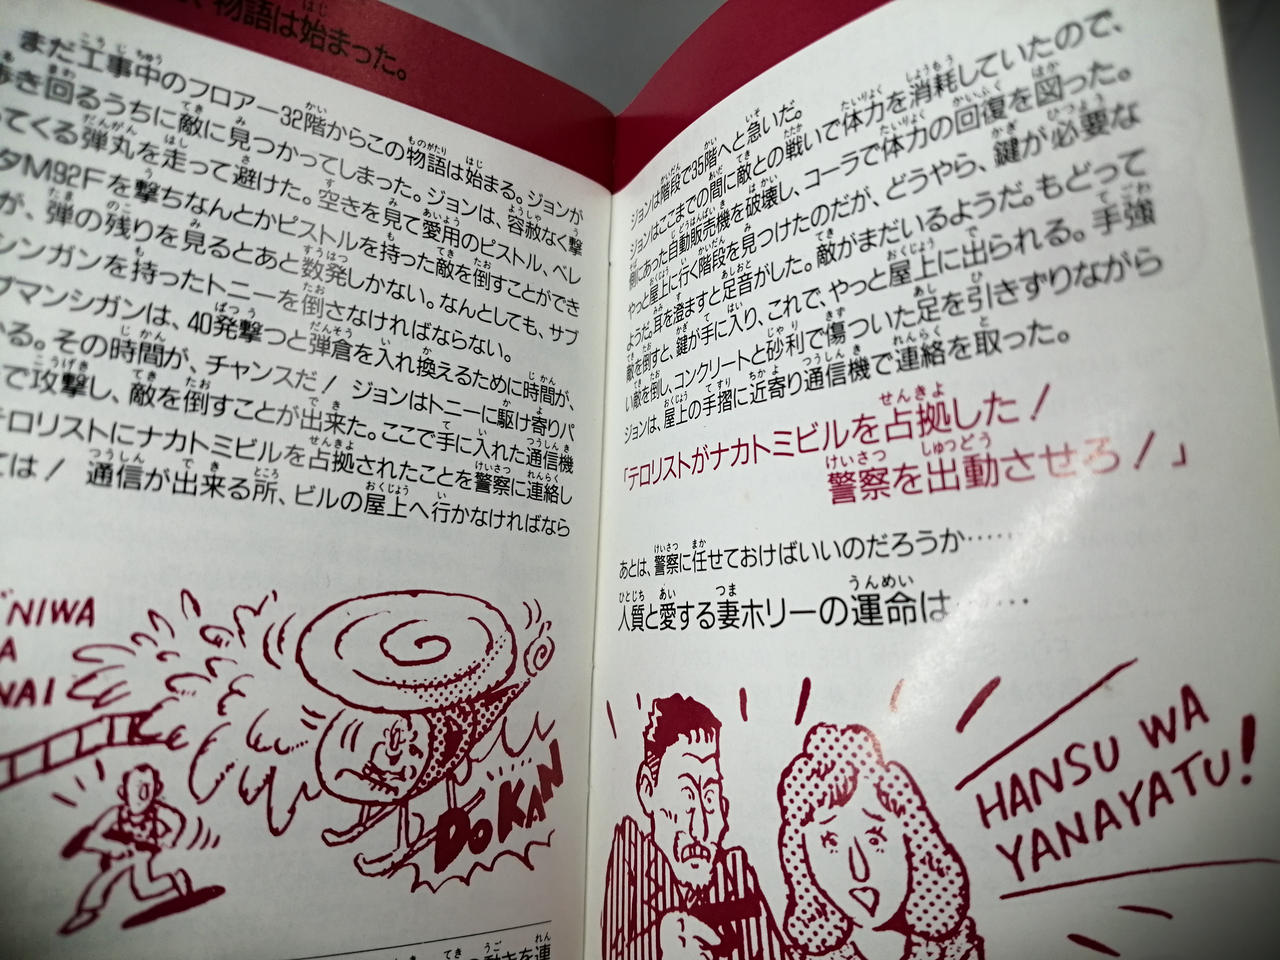 物語は始まった。
まだ工事中のフロアー32階からこの物語は始まる。ジョンが
歩き回るうちに敵に見つかってしまった。ジョンは、容赦なく撃
ってくる弾丸を走って避けた。空きを見て愛用のピストル、ベレ
タM92Fを撃ちなんとかピストルを持った敵を倒すことができ
が、弾の残りを見るとあと数発しかない。なんとしても、サブ
シンガンを持ったトニーを倒さなければならない。
ブマンシガンは、40発撃つと弾倉を入れ換えるために時間が、
かる。その時間が、チャンスだ！ ジョンはトニーに駆け寄りパ
で攻撃し、敵を倒すことが出来た。ここで手に入れた通信機
テロリストにナカトミビルを占拠されたことを警察に連絡し
ては！ 通信が出来る所、ビルの屋上へ行かなければなら
NIWA
A
NAI
DOKAN
敵 動きを連
ジョンは階段で35階へと急いだ。
ジョンはここまでの間に敵との戦いで体力を消耗していたので、
側にあった自動販売機を破壊し、コーラで体力の回復を図った。
やっと屋上に行く階段を見つけたのだが、どうやら、鍵が必要な
ようだ。耳を澄ますと足音がした。敵がまだいるようだ。もどって
敵を倒すと、鍵が手に入り、これで、やっと屋上に出られる。手強
い敵を倒し、コンクリートと砂利で傷ついた足を引きずりながら
ジョンは、屋上の手摺に近寄り通信機で連絡を取った。
「テロリストがナカトミビルを占拠した！
警察を出動させろ！」
あとは、警察に任せておけばいいのだろうか……
人質と愛する妻ホリーの運命は……
HANSU WA
YANAYATU!